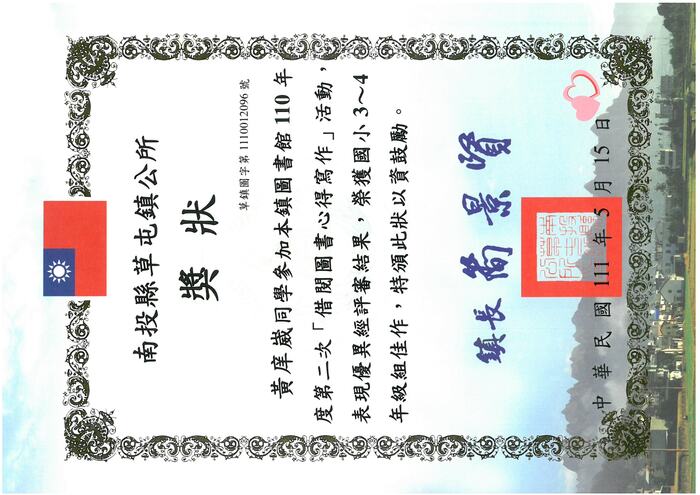 南投縣草屯鎮公所
獎狀
草鎮圖字第 1110012096 號
黃庠崴同學參加本鎮圖書館 110 年
度第二次「借閱圖書心得寫作」活動，
表現優異經評審結果，榮獲國小 3～4
年級組佳作，特頒此狀以資鼓勵。
鎮長 簡景賢
中華民國 111 年 5 月 15 日